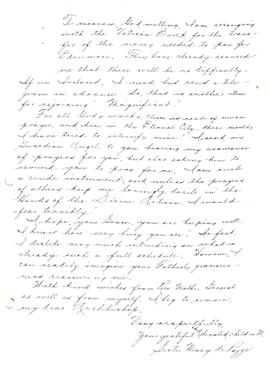 To-morrow, God willing, I am arranging
with the Vatican Bank for the trans-
fer of the money needed to pay for
They have already assured
me that there will be no difficulty.
If in Ireland, I need but send a tele-
gram in advance. So, that is another item
for rejoicing! Magnificat!
For all God's works, there is need of much
prayer, and here in the Eternal City, these months
I have tried to intensify mine! I send my
Guardian Angel to you bearing my assurance
of prayers for you, but also asking him to
remind you to pray for me. I am such
a crude instrument, and unless the prayers
of others keep me lovingly docile in the
Hands of the Divine Artisan, I would
fear terribly!
I hope, your Grace, you are keeping well.
I know how very busy you are! In fact,
I dislike very much intruding on what is
already such a full schedule. However, I
can readily imagine your Fatherly gracious-
ness reassuring me.
With kind wishes from Rev. Mother General
as well as from myself, I beg to remain,
my dear Archbishop,
Very respectfully,
Your grateful, devoted child in
Sister Mary de